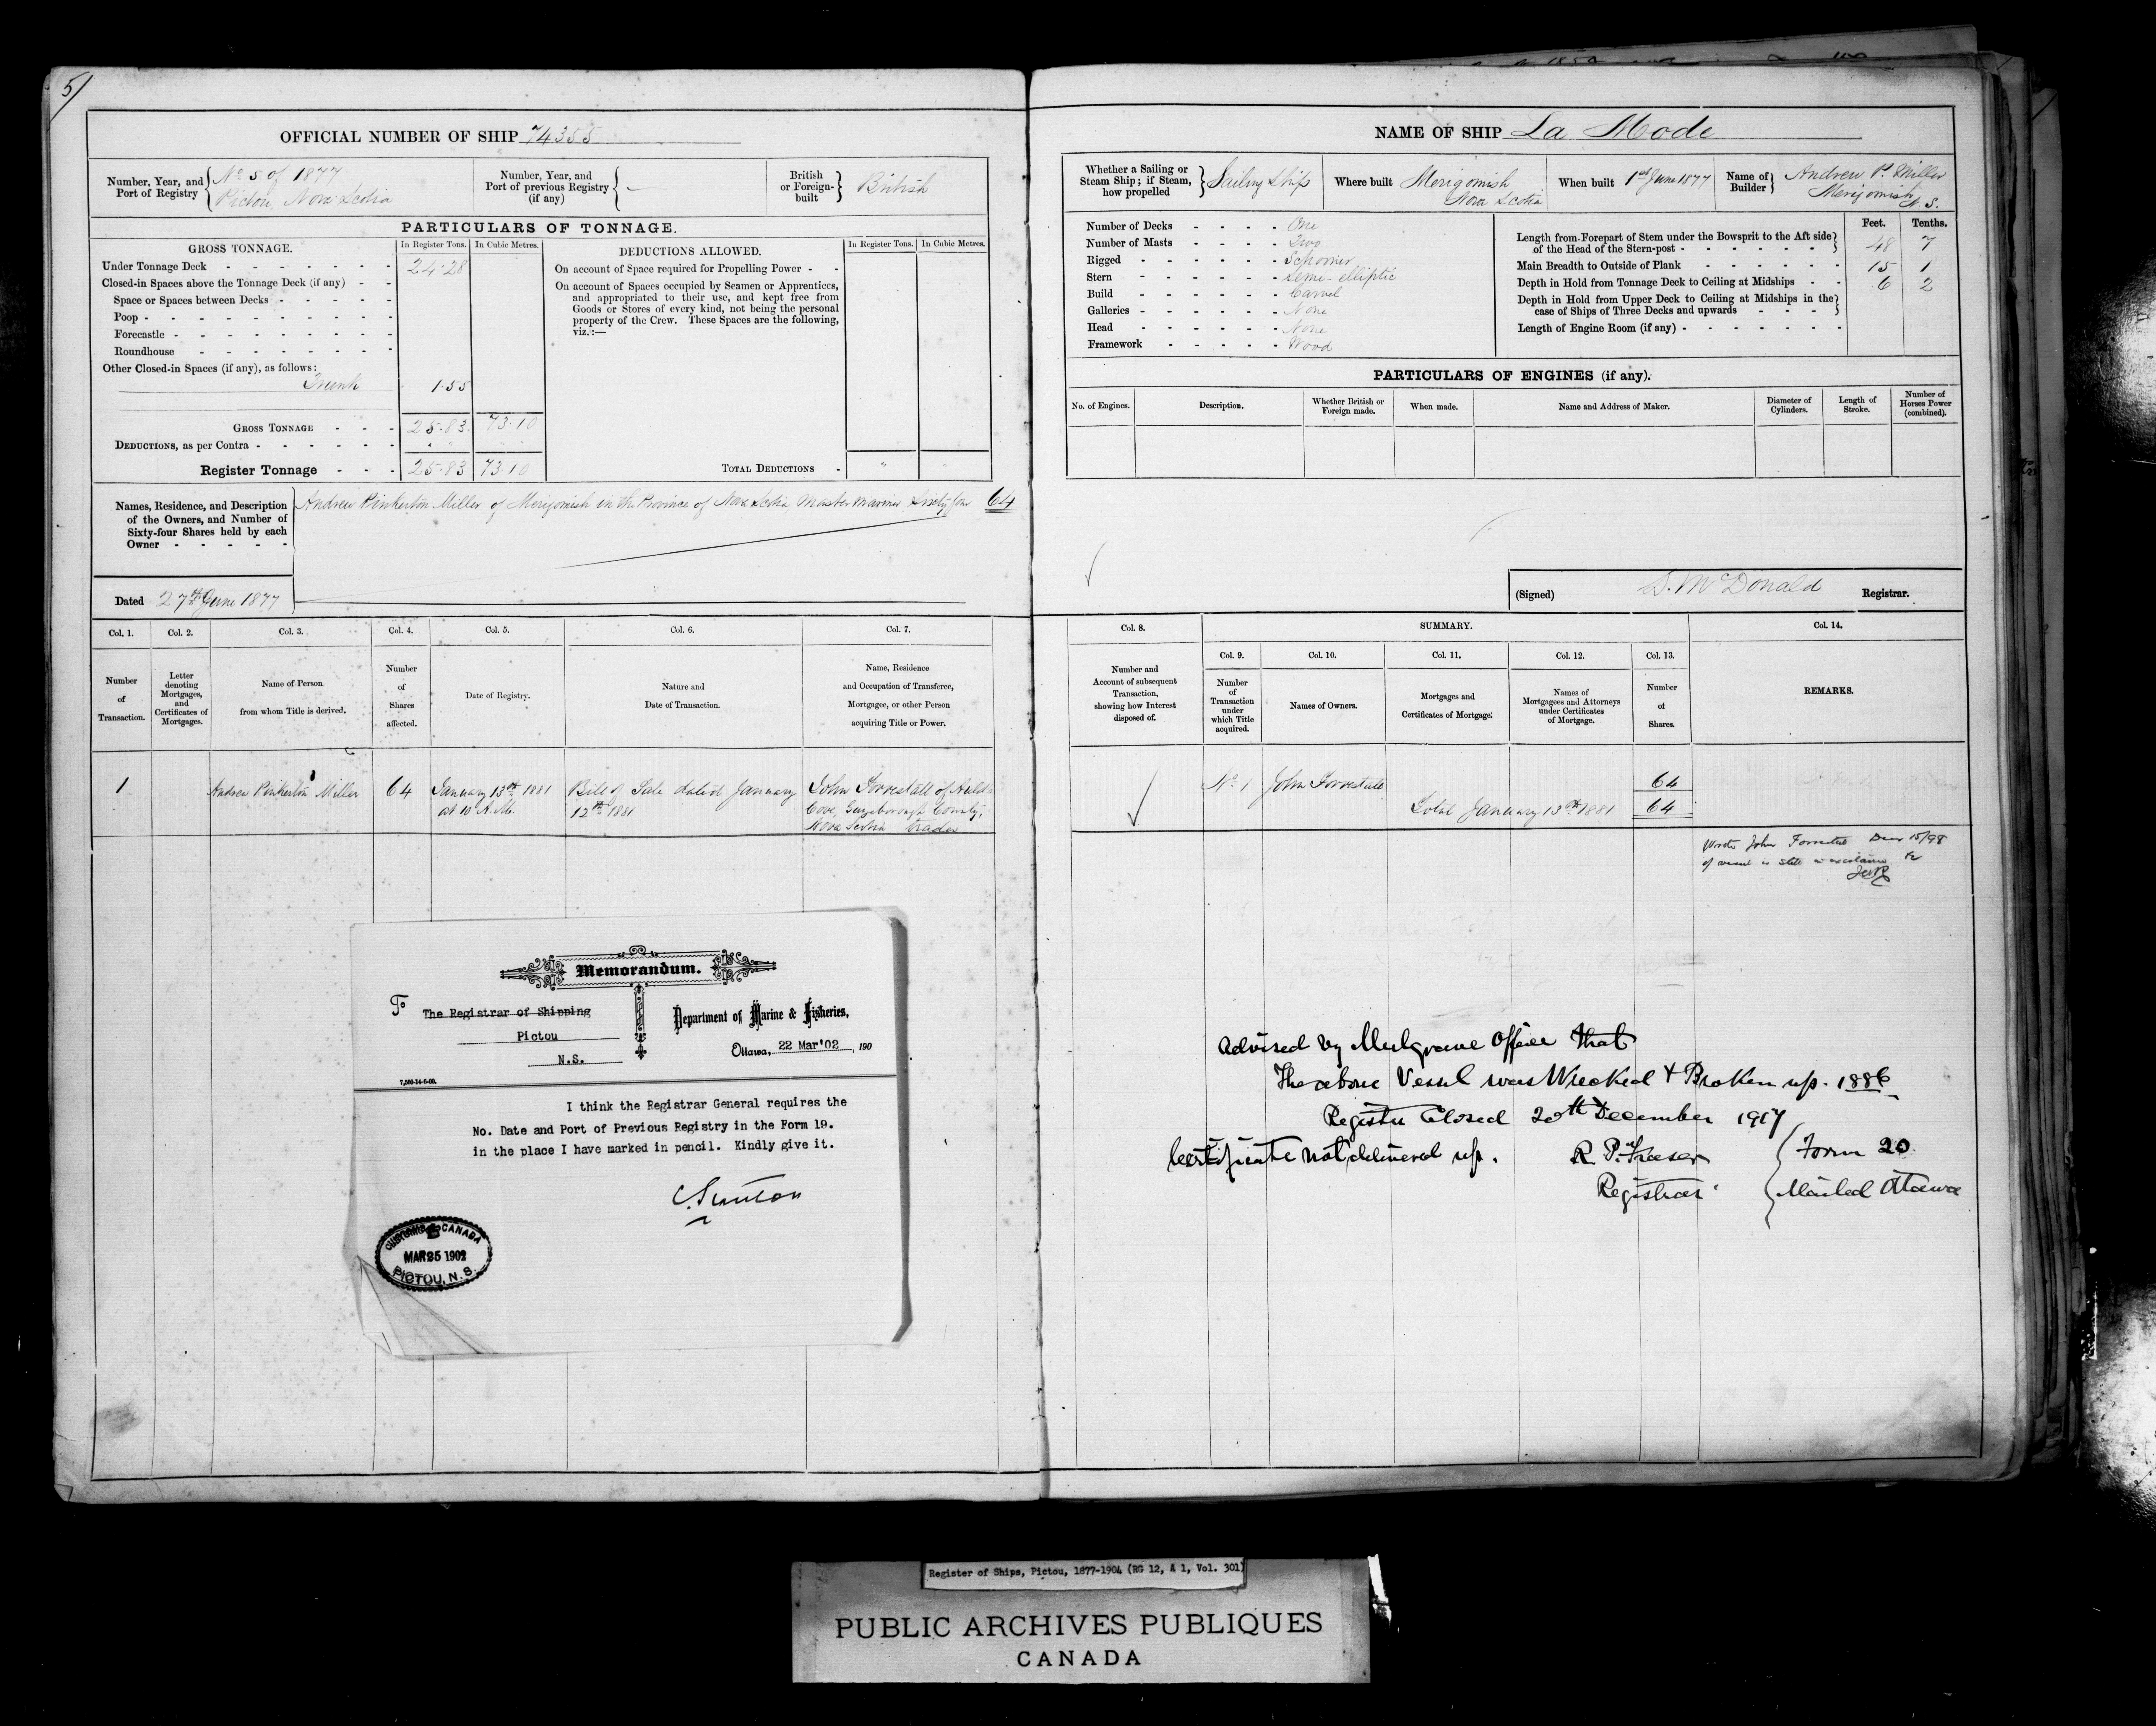 5/
OFFICIAL NUMBER OF SHIP 74355
Number, Year, and Port of Registry
No 5 of 1877
Pictou, Nova Scotia
Number, Year, and Port of previous Registry (if any)
British or Foreign-built
British
PARTICULARS OF TONNAGE.
GROSS TONNAGE.
In Register Tons.
In Cubic Metres.
Under Tonnage Deck 24.28
Closed-in Spaces above the Tonnage Deck (if any)
Space or Spaces between Decks
Poop
Forecastle
Roundhouse
Other Closed-in Spaces (if any), as follows:
Trunk 1.55
GROSS TONNAGE 25.83 73.10
DEDUCTIONS, as per Contra " "
Register Tonnage 25.83 73.10
DEDUCTIONS ALLOWED.
In Register Tons.
In Cubic Metres.
On account of Space required for Propelling Power
On account of Spaces occupied by Seamen or Apprentices,
and appropriated to their use, and kept free from
Goods or Stores of every kind, not being the personal
property of the Crew. These Spaces are the following,
viz.:—
TOTAL DEDUCTIONS " "
Names, Residence, and Description
of the Owners, and Number of
Sixty-four Shares held by each
Owner
Andrew Pinkerton Miller of Merigomish in the Province of Nova Scotia, Master Mariner Sixty four 64
Dated 27th June 1877
Col. 1.
Number of Transaction.
Col. 2.
Letter denoting Mortgages, and Certificates of Mortgages.
Col. 3.
Name of Person from whom Title is derived.
Col. 4.
Number of Shares affected.
Col. 5.
Date of Registry.
Col. 6.
Nature and Date of Transaction.
Col. 7.
Name, Residence and Occupation of Transferee, Mortgagee, or other Person acquiring Title or Power.
1
Andrew Pinkerton Miller
64
January 13th 1881
at 10 A.M.
Bill of Sale dated January
12th 1881
John Forrestall of Aulds
Cove, Guysborough County,
Nova Scotia trader
Memorandum.
To The Registrar of Shipping
Pictou
N.S.
7,500-14-6-00.
Department of Marine & Fisheries,
Ottawa, 22 Mar'02, 190
I think the Registrar General requires the
No. Date and Port of Previous Registry in the Form 19.
in the place I have marked in pencil. Kindly give it.
C. Stanton
CUSTOMS CANADA
MAR 25 1902
PICTOU, N.S.
NAME OF SHIP La Mode
Whether a Sailing or Steam Ship; if Steam, how propelled
Sailing Ship
Where built
Merigomish
Nova Scotia
When built 1st June 1877
Name of Builder
Andrew P. Miller
Merigomish
N.S.
Number of Decks One
Number of Masts Two
Rigged Schooner
Stern Semi-elliptic
Build Carvel
Galleries None
Head None
Framework Wood
Feet. Tenths.
Length from Forepart of Stem under the Bowsprit to the Aft side
of the Head of the Stern-post 48 7
Main Breadth to Outside of Plank 15 1
Depth in Hold from Tonnage Deck to Ceiling at Midships 6 2
Depth in Hold from Upper Deck to Ceiling at Midships in the
case of Ships of Three Decks and upwards
Length of Engine Room (if any)
PARTICULARS OF ENGINES (if any).
No. of Engines.
Description.
Whether British or Foreign made.
When made.
Name and Address of Maker.
Diameter of Cylinders.
Length of Stroke.
Number of Horses Power (combined).
(Signed) D. McDonald Registrar.
Col. 8.
Number and Account of subsequent Transaction, showing how Interest disposed of.
SUMMARY.
Col. 9.
Number of Transaction under which Title acquired.
Col. 10.
Names of Owners.
Col. 11.
Mortgages and Certificates of Mortgage.
Col. 12.
Names of Mortgagees and Attorneys under Certificates of Mortgage.
Col. 13.
Number of Shares.
Col. 14.
REMARKS.
No 1 John Forrestall 64
Total January 13th 1881 64
Wrote John Forrestal Decr 15/98
Advised by Mulgrave Office that
The above Vessel was Wrecked & Broken up. 1886
Registry Closed 20th December 1917
Certificate not delivered up.
R. P. Fraser
Registrar
Form 20
Mailed Ottawa
Register of Ships, Pictou, 1877-1904 (RG 12, A 1, Vol. 301)
PUBLIC ARCHIVES PUBLIQUES
CANADA